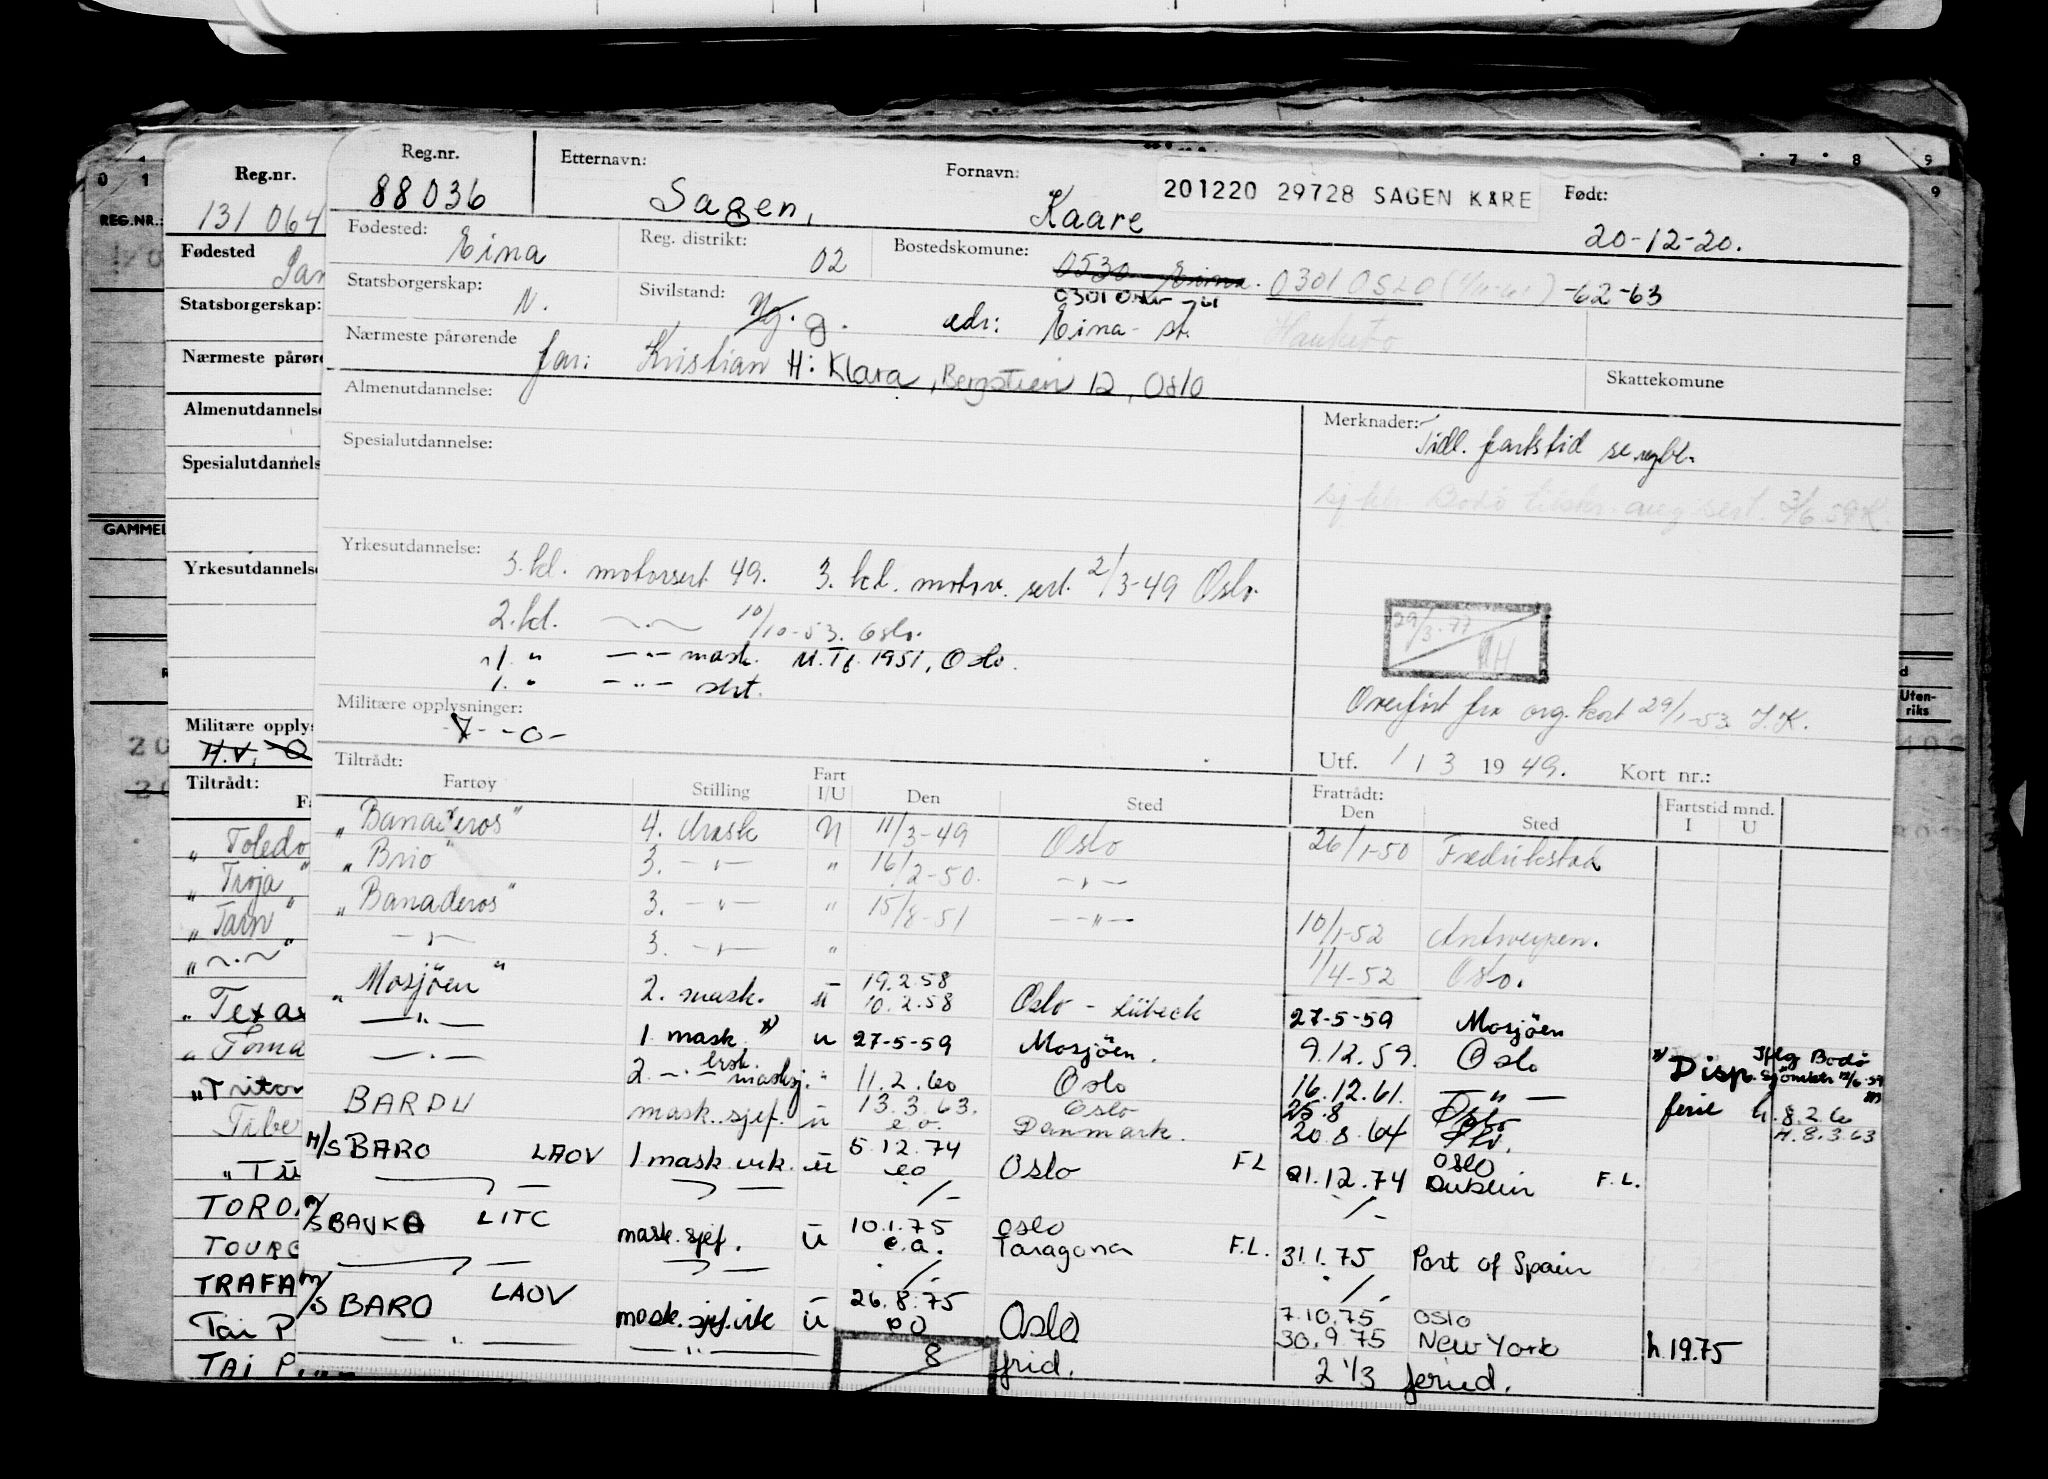 Reg.nr. Etternavn: Fornavn: 201220 29728 SAGEN KARE Født:
88036 Sagen, Kaare 20-12-20.
Fødested: Eina Reg. distrikt: 02 Bostedskomune: 0530 Eina. 0301 OSLO -62-63
0301 Oslo
Statsborgerskap: N. Sivilstand: Ug. g. adr: Eina st. Hauketo
Nærmeste pårørende far: Kristian H: Klara, Bergstien 12, Oslo
Skattekomune
Almenutdannelse:
Merknader: Tidl. fartstid se
Spesialutdannelse:
3/6 59 K
Yrkesutdannelse: 3. kl. motorsert 49. 3. kl. motor. sert. 2/3-49 Oslo.
2. kl. —〃— 10/10-53. Oslo.
1. " —"— mask. 1951, Oslo.
1. " —"— sert.
29/3.77
Overført fra org. kort 29/1-53
Militære opplysninger: -7- -0-
Utf. 1 / 3 1949. Kort nr.:
Tiltrådt: Fratrådt: Fartstid mnd.
Fartøy Stilling Fart I/U Den Sted Den Sted I U
"Banaderos" 4. Mask U 11/3-49 Oslo 26/1-50 Fredrikstad
"Brio" 3. —"— " 16/2-50. —"—
"Banaderos" 3. —"— " 15/8-51 —"— 10/1-52 Antwerpen.
—"— 3. —"— " 1/4-52 Oslo.
"Mosjöen" 2. mask. u 19.2.58 10.2.58 Oslo - Lübeck 27-5-59 Mosjöen
—"— 1 mask x) u 27-5-59 Mosjöen. 9.12.59. Oslo x) Disp. Sjömktr Bodö
—"— 2. —"— masksj. " 11.2.60 Oslo 16.12.61. —"— ferie h. 8.2.60
BARDU mask. sjef. u 13.3.63. e.o. Oslo Danmark. 25.8 20.8.64 Oslo H. 8.3.63
M/S BARO LAOV 1 mask vik. u 5.12.74 eo Oslo F.L 21.12.74 Oslo Dublin F.L.
M/S BAUKA LITC mask. sjef. u 10.1.75 e.a. Oslo Taragona F.L. 31.1.75 Port of Spain
M/S BARO LAOV mask. sjef. vik u 26.8.75 eo Oslo 7.10.75 Oslo
—"— —"— 30.9.75 New York h. 1975
8 frid. 2 1/3 feried.
Reg.nr.
131 064
Fødested
Statsborgerskap:
Nærmeste pårøre
Almenutdannels
Spesialutdannels
Yrkesutdannelse
Militære opplys
H.V.
Tiltrådt:
"Toledo
"Troja"
"Tarn"
"—"—"
"Texas
"Toma
"Triton
Tiber
TORO
TOURC
TRAFA
Tai P
TAI P
0 1
REG.NR.:
GAMMEL
7 8 9
9
Uten-
riks